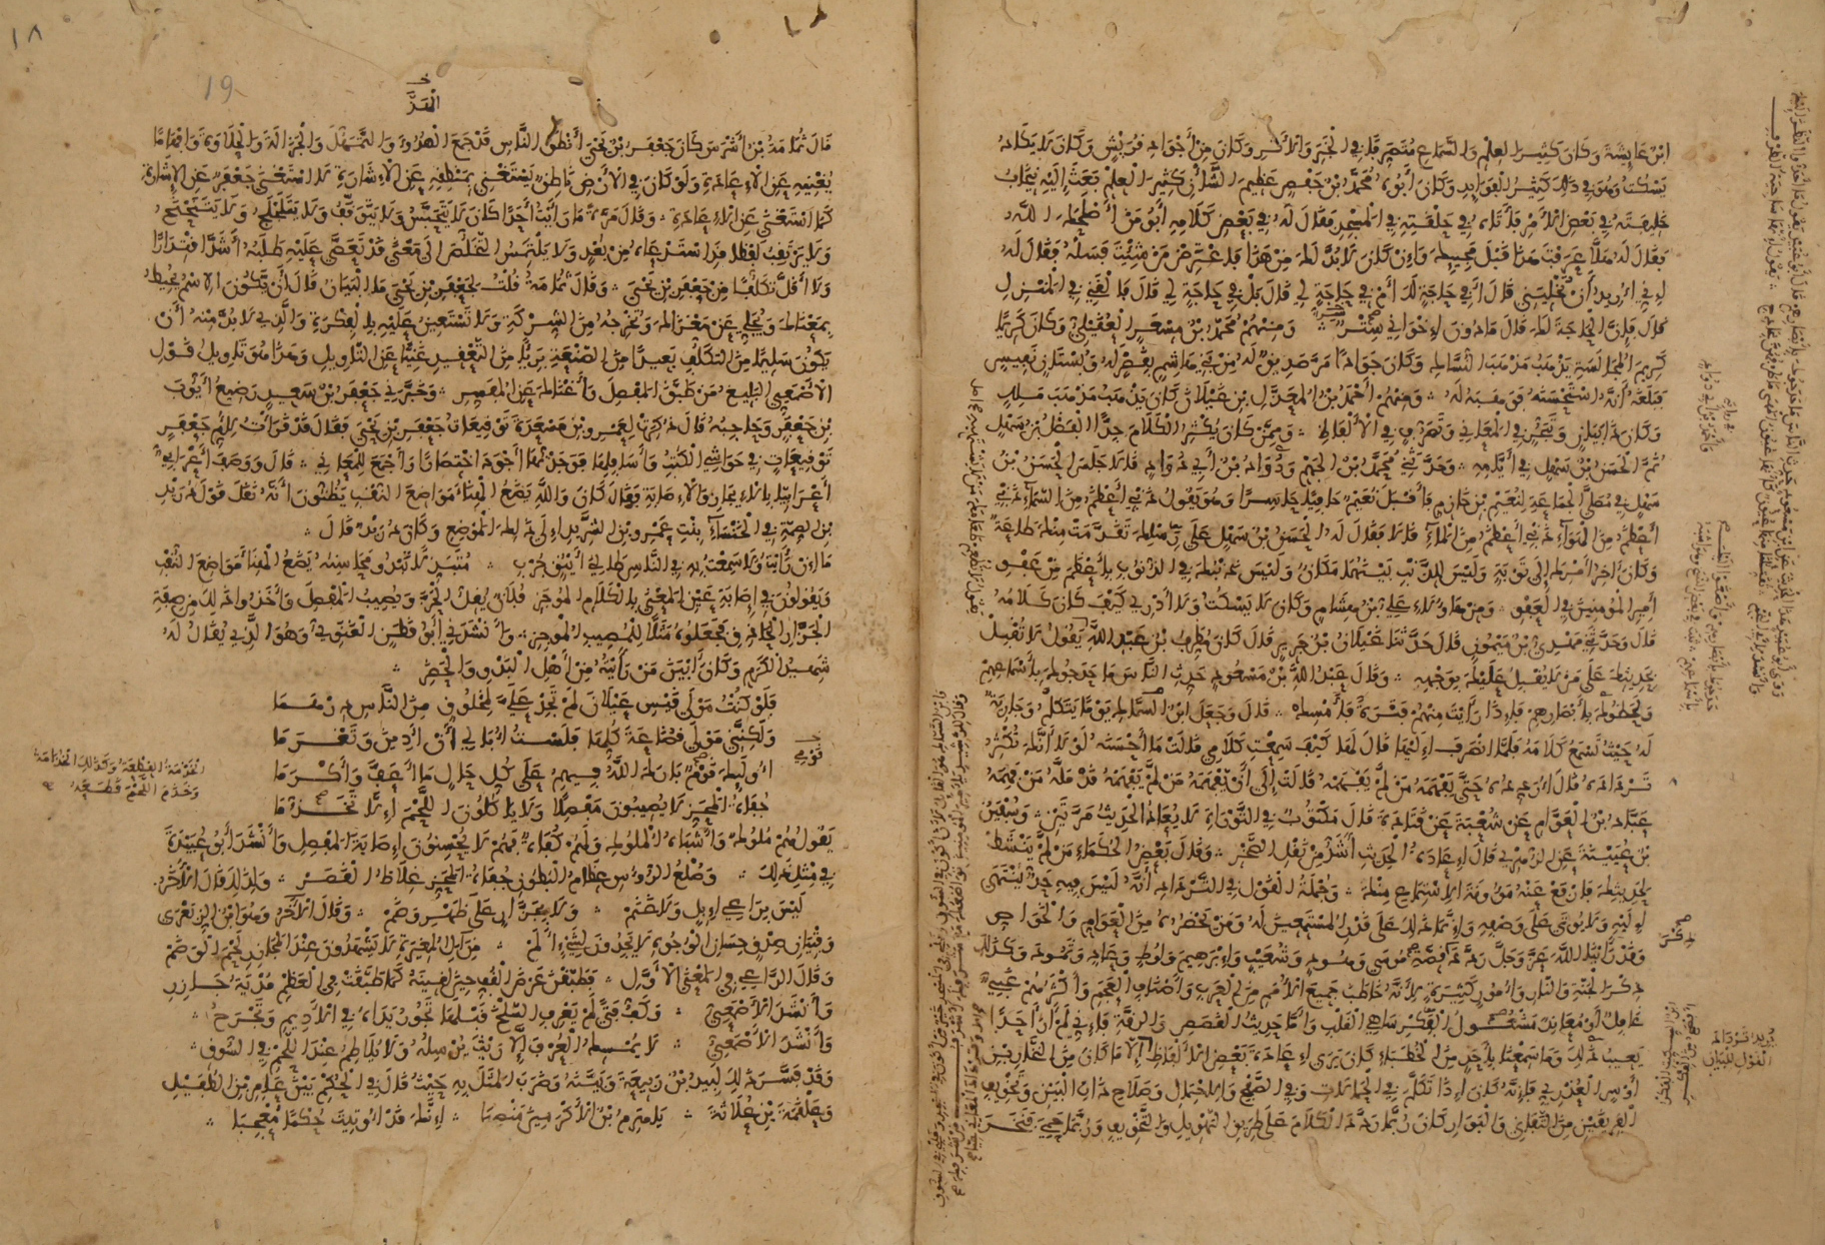 ابْنُ عَائِشَةَ وَكَانَ كَثِيرَ الْعِلْمِ وَالسَّمَاعِ مُتَصَرِّفًا فِي الْخَبَرِ وَالْأَثَرِ وَكَانَ مِنْ أَجْوَادِ قُرَيْشٍ وَكَانَ لَا يَكَادُ
يَسْكُتُ وَهُوَ فِي ذَلِكَ كَثِيرُ الْفَوَائِدِ وَكَانَ أَبُوهُ مُحَمَّدُ بْنُ حَفْصٍ عَظِيمَ الشَّأْنِ كَثِيرَ الْعِلْمِ بَعَثَ إِلَيْهِ يَنْخَابُ
خَلِيفَتَهُ فِي بَعْضِ الْأَمْرِ فَأَتَاهُ فِي حَلْقَتِهِ فِي الْمَسْجِدِ فَقَالَ لَهُ فِي بَعْضِ كَلَامِهِ أَبُو مَنْ أَصْلَحَكَ اللَّهُ
فَقَالَ لَهُ هَلَّا عَرَفْتَ هَذَا قَبْلَ مَجِيئِكَ وَإِنْ كَانَ لَا بُدَّ لَكَ مِنْ هَذَا فَاعْتَرِضْ مَنْ شِئْتَ فَسَلْهُ فَقَالَ لَهُ
إِنِّي أُرِيدُ أَنْ تُخْلِيَنِي قَالَ أَفِي حَاجَةٍ لَكَ أَمْ فِي حَاجَةٍ لِي قَالَ بَلْ فِي حَاجَةٍ لِي قَالَ فَالْقَنِي فِي الْمَنْزِلِ
قَالَ فَإِنَّ الْحَاجَةَ لَكَ قَالَ مَا دُونَ إِخْوَانِي سِتْرٌ وَمِنْهُمْ مُحَمَّدُ بْنُ مِسْعَرٍ الْعُقَيْلِيُّ وَكَانَ كَرِيمًا
كَرِيمَ الْمُجَالَسَةِ يَذْهَبُ مَذْهَبَ النُّسَّاكِ وَكَانَ جَوَادًا مَرَّ صَدِيقٌ لَهُ مِنْ بَنِي هَاشِمٍ بِقَصْرٍ لَهُ وَبُسْتَانٍ نَفِيسٍ
فَبَلَغَهُ أَنَّهُ اسْتَحْسَنَهُ فَوَهَبَهُ لَهُ وَمِنْهُمْ أَحْمَدُ بْنُ الْمُعَذَّلِ بْنِ غَيْلَانَ كَانَ يَذْهَبُ مَذْهَبَ مَالِكٍ
وَكَانَ ذَا بَيَانٍ وَتَبَحُّرٍ فِي الْمَعَانِي وَتَصَرُّفٍ فِي الْأَلْفَاظِ وَمِمَّنْ كَانَ يُكْثِرُ الْكَلَامَ جِدًّا الْفَضْلُ بْنُ سَهْلٍ
ثُمَّ الْحَسَنُ بْنُ سَهْلٍ فِي أَيَّامِهِ وَحَدَّثَنِي مُحَمَّدُ بْنُ الْجَهْمِ وَدُوَادُ بْنُ أَبِي دُوَادٍ قَالَا جَلَسَ الْحَسَنُ بْنُ
سَهْلٍ فِي مُصَلَّى الْجَمَاعَةِ لِنُعَيْمِ بْنِ خَازِمٍ فَأَقْبَلَ نُعَيْمٌ حَافِيًا حَاسِرًا وَهُوَ يَقُولُ ذَنْبِي أَعْظَمُ مِنَ السَّمَاءِ ذَنْبِي
أَعْظَمُ مِنَ الْهَوَاءِ ذَنْبِي أَعْظَمُ مِنَ الْمَاءِ قَالَا فَقَالَ لَهُ الْحَسَنُ بْنُ سَهْلٍ عَلَى رِسْلِكَ تَقَدَّمَتْ مِنْكَ طَاعَةٌ
وَكَانَ آخِرُ أَمْرِكَ إِلَى تَوْبَةٍ وَلَيْسَ لِلذَّنْبِ بَيْنَهُمَا مَكَانٌ وَلَيْسَ ذَنْبُكَ فِي الذُّنُوبِ بِأَعْظَمَ مِنْ عَفْوِ
أَمِيرِ الْمُؤْمِنِينَ فِي الْعَفْوِ وَمِنْ هَؤُلَاءِ عَلِيُّ بْنُ هِشَامٍ وَكَانَ لَا يَسْكُتُ وَلَا أَدْرِي كَيْفَ كَانَ كَلَامُهُ
قَالَ وَحَدَّثَنِي مَهْدِيُّ بْنُ مَيْمُونٍ قَالَ حَدَّثَنَا غَيْلَانُ بْنُ جَرِيرٍ قَالَ كَانَ مُطَرِّفُ بْنُ عَبْدِ اللَّهِ يَقُولُ لَا تُقْبِلْ
بِحَدِيثِكَ عَلَى مَنْ لَا يُقْبِلُ عَلَيْكَ بِوَجْهِهِ وَقَالَ عَبْدُ اللَّهِ بْنُ مَسْعُودٍ حَدِّثِ النَّاسَ مَا حَدَجُوكَ بِأَسْمَاعِهِمْ
وَلَحَظُوكَ بِأَبْصَارِهِمْ فَإِذَا رَأَيْتَ مِنْهُمْ فَتْرَةً فَأَمْسِكْ قَالَ وَجَعَلَ ابْنُ السَّمَّاكِ يَوْمًا يَتَكَلَّمُ وَجَارِيَةٌ
لَهُ حَيْثُ تَسْمَعُ كَلَامَهُ فَلَمَّا انْصَرَفَ إِلَيْهَا قَالَ لَهَا كَيْفَ سَمِعْتِ كَلَامِي قَالَتْ مَا أَحْسَنَهُ لَوْلَا أَنَّكَ تُكْثِرُ
تَرْدَادَهُ قَالَ أُرَدِّدُهُ حَتَّى يَفْهَمَهُ مَنْ لَمْ يَفْهَمْهُ قَالَتْ إِلَى أَنْ يَفْهَمَهُ مَنْ لَمْ يَفْهَمْهُ قَدْ مَلَّهُ مَنْ فَهِمَهُ
عَبَّادُ بْنُ الْعَوَّامِ عَنْ شُعْبَةَ عَنْ قَتَادَةَ قَالَ مَكْتُوبٌ فِي التَّوْرَاةِ لَا يُعَادُ الْحَدِيثُ مَرَّتَيْنِ وَسُفْيَنُ
بْنُ عُيَيْنَةَ عَنِ الزُّهْرِيِّ قَالَ إِعَادَةُ الْحَدِيثِ أَشَدُّ مِنْ نَقْلِ الصَّخْرِ وَقَالَ بَعْضُ الْحُكَمَاءِ مَنْ لَمْ يَنْشَطْ
لِحَدِيثِكَ فَارْفَعْ عَنْهُ مَؤُونَةَ الْاِسْتِمَاعِ مِنْكَ وَجُمْلَةُ الْقَوْلِ فِي التَّرْدَادِ أَنَّهُ لَيْسَ فِيهِ حَدٌّ يُنْتَهَى
إِلَيْهِ وَلَا يُؤْتَى عَلَى وَصْفِهِ وَإِنَّمَا ذَلِكَ عَلَى قَدْرِ الْمُسْتَمِعِينَ لَهُ وَمَنْ يَحْضُرُهُ مِنَ الْعَوَامِّ وَالْخَوَاصِّ
وَقَدْ رَأَيْنَا اللَّهَ عَزَّ وَجَلَّ رَدَّدَ ذِكْرَ قِصَّةِ مُوسَى وَهُودٍ وَشُعَيْبٍ وَإِبْرَهِيمَ وَلُوطٍ وَعَادٍ وَثَمُودَ وَكَذَلِكَ
ذِكْرَ الْجَنَّةِ وَالنَّارِ وَأُمُورٍ كَثِيرَةٍ لِأَنَّهُ خَاطَبَ جَمِيعَ الْأُمَمِ مِنَ الْعَرَبِ وَأَصْنَافِ الْعَجَمِ وَأَكْثَرُهُمْ غَبِيٌّ
غَافِلٌ أَوْ مُعَانِدٌ مَشْغُولُ الْفِكْرِ سَاهِي الْقَلْبِ وَأَمَّا حَدِيثُ الْقَصَصِ وَالرِّقَّةِ فَإِنِّي لَمْ أَرَ أَحَدًا
يَعِيبُ ذَلِكَ وَمَا سَمِعْنَا بِأَحَدٍ مِنَ الْخُطَبَاءِ كَانَ يَرَى إِعَادَةَ بَعْضِ الْأَلْفَاظِ إِلَّا مَا كَانَ مِنَ النَّخَّارِ بْنِ
أَوْسٍ الْعُذْرِيِّ فَإِنَّهُ كَانَ إِذَا تَكَلَّمَ فِي الْحَمَالَاتِ وَفِي الصَّفْحِ وَالِاحْتِمَالِ وَصَلَاحِ ذَاتِ الْبَيْنِ وَتَخْوِيفِ
الْفَرِيقَيْنِ مِنَ التَّفَانِي وَالْبَوَارِ كَانَ رُبَّمَا رَدَّدَ الْكَلَامَ عَلَى طَرِيقِ التَّهْوِيلِ وَالتَّخْوِيفِ وَرُبَّمَا حَمِيَ فَنَخَرَ
١٨
19
الْهَذَّ
قَالَ ثُمَامَةُ بْنُ أَشْرَسَ كَانَ جَعْفَرُ بْنُ يَحْيَى أَنْطَقَ النَّاسِ قَدْ جَمَعَ الْهُدُوءَ وَالتَّمَهُّلَ وَالْجَزَالَةَ وَالْحَلَاوَةَ وَإِفْهَامًا
يُغْنِيهِ عَنِ الْإِعَادَةِ وَلَوْ كَانَ فِي الْأَرْضِ نَاطِقٌ يَسْتَغْنِي بِمَنْطِقِهِ عَنِ الْإِشَارَةِ لَاسْتَغْنَى جَعْفَرٌ عَنِ الْإِشَارَةِ
كَمَا اسْتَغْنَى عَنِ الْإِعَادَةِ وَقَالَ مَرَّةً مَا رَأَيْتُ أَحَدًا كَانَ لَا يَتَحَبَّسُ وَلَا يَتَوَقَّفُ وَلَا يَتَلَجْلَجُ وَلَا يَتَنَحْنَحُ
وَلَا يَرْتَقِبُ لَفْظًا قَدِ اسْتَدْعَاهُ مِنْ بُعْدٍ وَلَا يَلْتَمِسُ التَّخَلُّصَ إِلَى مَعْنًى قَدْ تَعَصَّى عَلَيْهِ طَلَبُهُ أَشَدَّ اقْتِدَارًا
وَلَا أَقَلَّ تَكَلُّفًا مِنْ جَعْفَرِ بْنِ يَحْيَى وَقَالَ ثُمَامَةُ قُلْتُ لِجَعْفَرِ بْنِ يَحْيَى مَا الْبَيَانُ قَالَ أَنْ يَكُونَ الِاسْمُ يُحِيطُ
بِمَعْنَاكَ وَيُجَلِّي عَنْ مَغْزَاكَ وَتُخْرِجَهُ مِنَ الشِّرْكَةِ وَلَا تَسْتَعِينَ عَلَيْهِ بِالْفِكْرَةِ وَالَّذِي لَا بُدَّ مِنْهُ أَنْ
يَكُونَ سَلِيمًا مِنَ التَّكَلُّفِ بَعِيدًا مِنَ الصَّنْعَةِ بَرِيًّا مِنَ التَّعْقِيدِ غَنِيًّا عَنِ التَّأْوِيلِ وَهَذَا هُوَ تَأْوِيلُ قَوْلِ
الْأَصْمَعِيِّ الْبَلِيغُ مَنْ طَبَّقَ الْمَفْصِلَ وَأَغْنَاكَ عَنِ الْمُفَسِّرِ وَخَبَّرَنِي جَعْفَرُ بْنُ سَعِيدٍ رَضِيعُ أَيُّوبَ
بْنِ جَعْفَرٍ وَحَاجِبُهُ قَالَ ذَكَرْتُ لِعَمْرِو بْنِ مَسْعَدَةَ تَوْقِيعَاتِ جَعْفَرِ بْنِ يَحْيَى فَقَالَ قَدْ قَرَأْتُ لِأُمِّ جَعْفَرٍ
تَوْقِيعَاتٍ فِي حَوَاشِي الْكُتُبِ وَأَسَافِلِهَا فَوَجَدْتُهَا أَجْوَدَ اخْتِصَارًا وَأَجْمَعَ لِلْمَعَانِي قَالَ وَوَصَفَ أَعْرَابِيٌّ
أَعْرَابِيًّا بِالْإِيجَازِ وَالْإِصَابَةِ فَقَالَ كَانَ وَاللَّهِ يَضَعُ الْهِنَاءَ مَوَاضِعَ النُّقْبِ يَظُنُّونَ أَنَّهُ نَقَلَ قَوْلَ دُرَيْدِ
بْنِ الصِّمَّةِ فِي الْخَنْسَاءِ بِنْتِ عَمْرِو بْنِ الشَّرِيدِ إِلَى ذَلِكَ الْمَوْضِعِ وَكَانَ دُرَيْدٌ قَالَ
مَا إِنْ رَأَيْتُ وَلَا سَمِعْتُ بِهِ فِي النَّاسِ طَالِيَ أَيْنُقٍ جُرْبِ مُتَبَذِّلًا تَبْدُو مَحَاسِنُهُ يَضَعُ الْهِنَاءَ مَوَاضِعَ النُّقْبِ
وَيَقُولُونَ فِي إِصَابَةِ عَيْنِ الْمَعْنَى بِالْكَلَامِ الْمُوجَزِ فُلَانٌ يَفُلُّ الْمَحَزَّ وَيُصِيبُ الْمَفْصِلَ وَأَخَذُوا ذَلِكَ مِنْ صِفَةِ
الْجَزَّارِ الْحَاذِقِ فَجَعَلُوهُ مَثَلًا لِلْمُصِيبِ الْمُوجِزِ وَأَنْشَدَنِي أَبُو قَطَنٍ الْغَنَوِيُّ وَهُوَ الَّذِي يُقَالُ لَهُ
شَهِيدُ الْكَرَمِ وَكَانَ أَبْيَنَ مَنْ رَأَيْتُهُ مِنْ أَهْلِ الْبَدْوِ وَالْحَضَرِ
فَلَوْ كُنْتُ مَوْلَى قَيْسِ عَيْلَانَ لَمْ تَجِدْ عَلَيَّ لِمَخْلُوقٍ مِنَ النَّاسِ دِرْهَمَا
وَلَكِنَّنِي مَوْلَى قُضَاعَةَ كُلِّهَا فَلَسْتُ أُبَالِي أَنْ أَدِينَ وَتَغْرَمَا
أُولَئِكَ قَوْمٌ بَارَكَ اللَّهُ فِيهِمِ عَلَى كُلِّ حَالٍ مَا أَعَفَّ وَأَكْرَمَا
جُفَاةُ الْمَحَزِّ لَا يُصِيبُونَ مَفْصِلًا وَلَا يَأْكُلُونَ اللَّحْمَ إِلَّا تَخَذُّمَا
يَقُولُ هُمْ مُلُوكٌ وَأَشْبَاهُ الْمُلُوكِ وَلَهُمْ كُفَاةٌ فَهُمْ لَا يُحْسِنُونَ إِصَابَةَ الْمَفْصِلِ وَأَنْشَدَ أَبُو عُبَيْدَةَ
فِي مِثْلِ ذَلِكَ وَصُلْعُ الرُّؤُوسِ عِظَامُ الْبُطُونِ جُفَاةُ الْمَحَزِّ غِلَاظُ الْقَصَرْ وَلِذَلِكَ قَالَ الْآخَرُ
لَيْسَ بِرَاعِي إِبِلٍ وَلَا غَنَمْ وَلَا بِجَزَّارٍ عَلَى ظَهْرِ وَضَمْ وَقَالَ الْآخَرُ وَهُوَ ابْنُ الزِّبَعْرَى
وَفِتْيَانِ صِدْقٍ حِسَانِ الْوُجُوهِ لَا يَجِدُونَ لِشَيْءٍ أَلَمْ مِنْ آلِ الْمُغِيرَةِ لَا يَشْهَدُونَ عِنْدَ الْمَجَازِرِ لَحْمَ الْوَضَمْ
وَقَالَ الرَّاعِي فِي الْمَعْنَى الْأَوَّلِ فَطَبَّقْنَ عَرْضَ الْقُفِّ حِينَ لَقِينَهُ كَمَا طَبَّقَتْ فِي الْعَظْمِ مُدْيَةُ جَازِرِ
وَأَنْشَدَ الْأَصْمَعِيُّ وَكَفُّ فَتًى لَمْ يَعْرِفِ السَّلْخَ قَبْلَهَا تَجُورُ يَدَاهُ فِي الْأَدِيمِ وَتَجْرَحُ
وَأَنْشَدَ الْأَصْمَعِيُّ لَا يُمْسِكُ الْعُرْفَ إِلَّا رَيْثَ يُرْسِلُهُ وَلَا يُلَاطِمُ عِنْدَ اللَّحْمِ فِي السُّوقِ
وَقَدْ فَسَّرَ ذَلِكَ لَبِيدُ بْنُ رَبِيعَةَ وَبَيَّنَهُ وَضَرَبَ الْمَثَلَ بِهِ حَيْثُ قَالَ فِي الْحُكْمِ بَيْنَ عَامِرِ بْنِ الطُّفَيْلِ
وَعَلْقَمَةَ بْنِ عُلَاثَةَ يَا هَرِمُ بْنَ الْأَكْرَمِينَ مَنْصِبَا إِنَّكَ قَدْ أُوتِيتَ حُكْمًا مُعْجِبَا